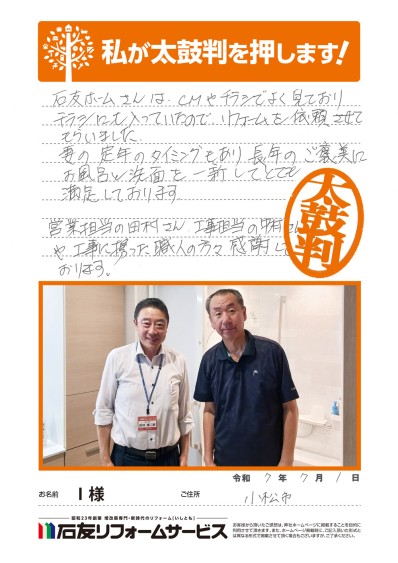 私が太鼓判を押します!
石友ホームさんは、CMやチラシでよく見ており
チラシにも入っていたので、リフォームを依頼させて
もらいました。
妻の定年のタイミングもあり、長年のご褒美に
お風呂と洗面を一新してとても
満足しております
太鼓判
営業担当の田村さん、工事担当の中村さん
や工事に携った職人の方々感謝して
おります。
令和 7年 7月 1日
お名前 I 様 ご住所 小松市
昭和23年創業 増改築専門・新時代のリフォーム[いしとも]
石友リフォームサービス
お客様から頂いたご感想は、弊社ホームページに掲載することを目的に
利用させて頂きます。また、ホームページ掲載時に、ご記入頂いた形式と
は異なる形式で掲載させて頂く場合もございますが、ご了承ください。